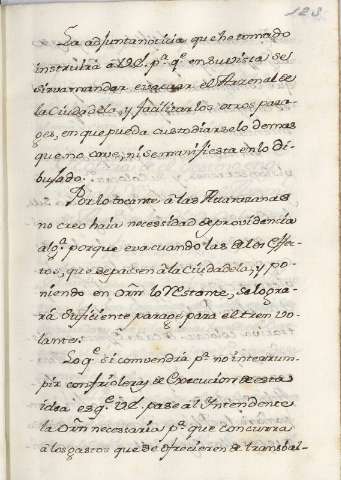 123
La adjunta noticia que he tomado
instruirá à Vd. pa. qe. en su vista se
sirva mandar evacuar el Arzenal de
la Ciudadela, y facilitar los otros para-
ges, en que pueda custodiarse lo demas
que no cave, ni se manifiesta en lo di-
bujado.
Por lo tocante à las Atarazanas
no creo haia necessidad de providencia
alga. porque evacuandolas de los effec-
tos, que de pasen à la Ciudadela, y po-
niendo en Orñ lo restante, se logra-
rá suficiente parage para el tren vo-
lante.
Lo qe. si convendrá pa. no interrum-
pir con frioleras de execucion de esta
idea es qe. Vd. pase al Intendente
la Orñ necessaria pa. que concurra
à los gastos que se ofrecieren de transbal-